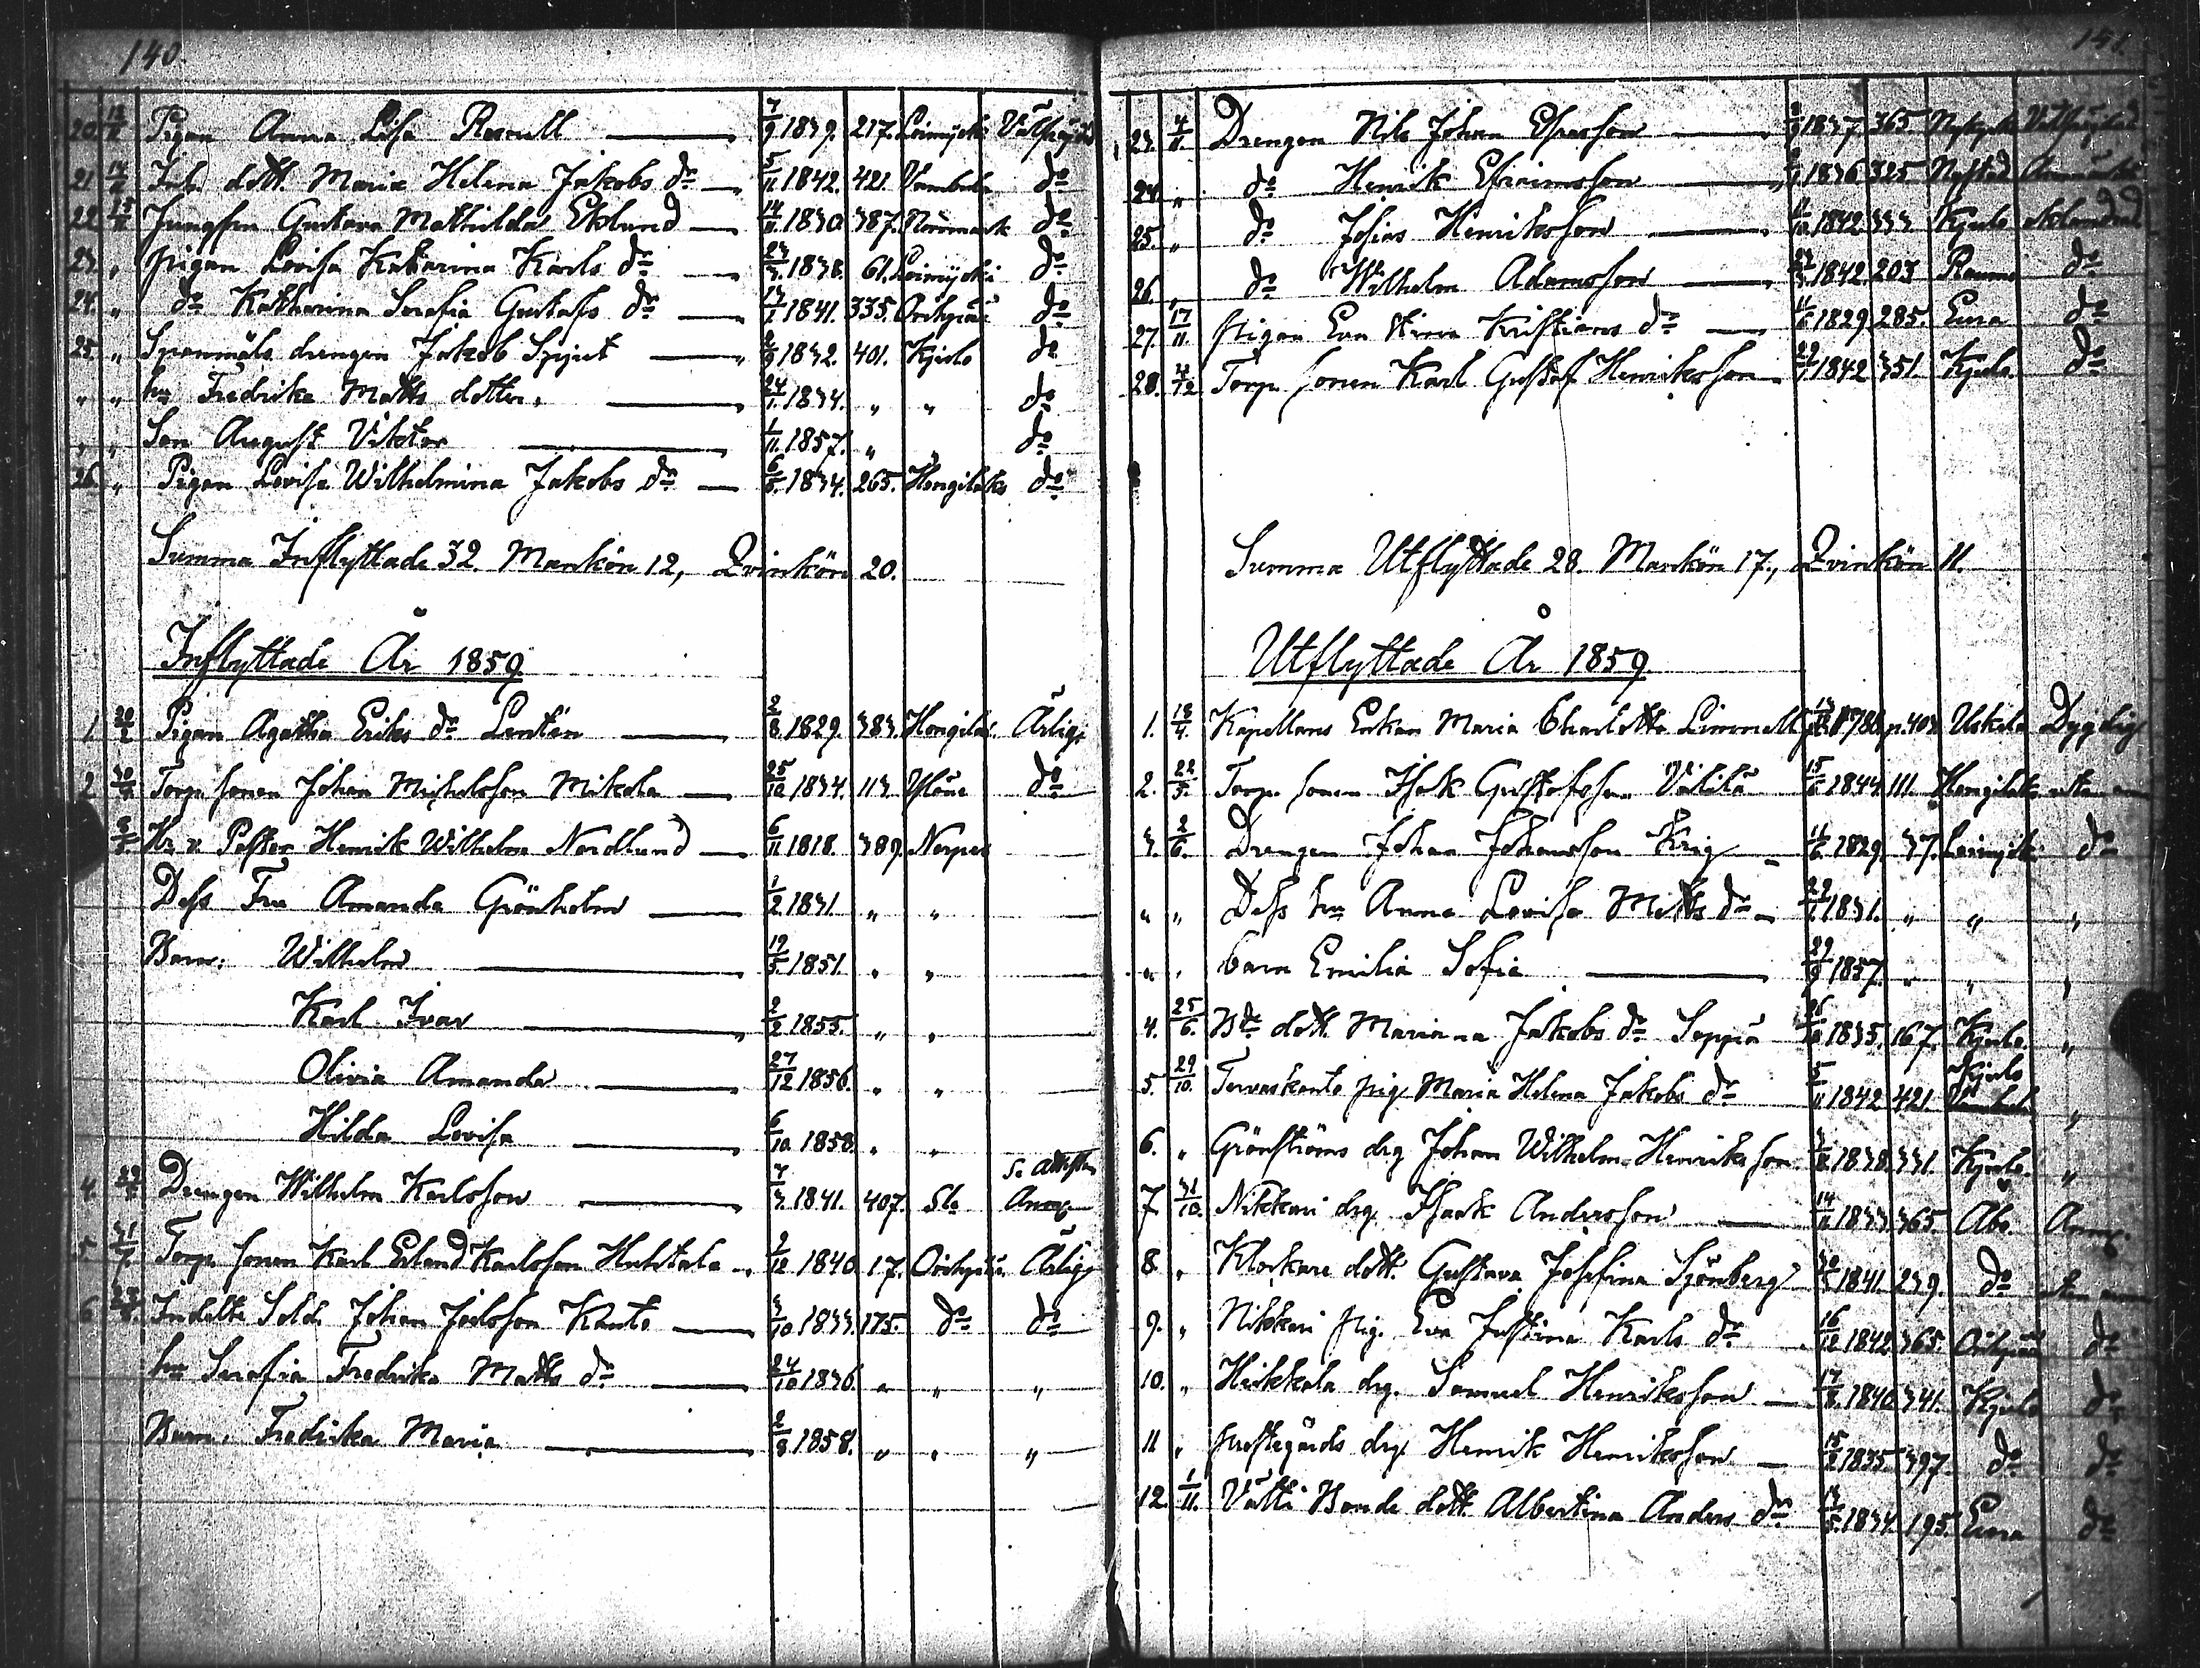 140.
20. Pigan Anna Lisa Rosnell 7/9 1839. 217. Loimijoki
21 14/11 Inh. dott. Maria Helena Jakobs dr 5/11 1842. 421. Vambula do
22 15/11 Jungfru Gustava Mathilda Eklund 14/11 1830 387. Norrmark do
23. " pigan Lovisa Katarina Karls dr 23/3. 1838. 61. Loimijoki do
24. " do Katharina Serafia Gustafs dr 1841. 335. Oripää do
25. " Spanmåls drengen Jakob Spjut 2/9 1832. 401. Kjulo do
" " hu Fredrika Matts dotter. 24/1. 1834. " " do
" " Son August Viktor 1/11. 1857. " " do
26. " Pigan Lovisa Wilhelmina Jakobs dr 6/6. 1834. 265. Hongilaks do
Summa Inflyttade 32. Mankön 12, Qvinkön 20.
Inflyttade År 1859.
1. 20/2 Pigan Agatha Eriks dr Lentén 2/8 1829. 383. Hongilax Ärlig.
2. Torp. sonen Johan Michelsson Mikola 25/10 1834. 113. Yläne do
Henrik Wilhelm Nordlund 6/11 1818. 389. Nerpes
Dess Fru Amanda Grönholm 1/2 1831 " "
Barn: Wilhelm 1851. " "
Karl Ivar 2/2 1855. " "
Olivia Amanda 27/12 1856. " "
Hilda Lovisa 6/10 1858. " "
4. Drengen Wilhelm Karlsson 7/3. 1841. 407.
5. 31/7. Torp. sonen Karl Erland Karlsson Huhtala 2/12 1840 17. Oripää Ärlig
6. Indelte Sold. Johan Joelsson Kanto 3/10 1833. 175. do do
hu Serafia Fredrika Matts dr 24/10 1836. " " "
Barn. Fredrika Maria 2/8 1858. " " "
141
23. 4/11. Drengen Nils Johan Efrasson 1837. 365
24. " do Henrik Efraimsson 1836 325 Nystad
25. " do Josias Henriksson 1842. 333 Kjulo
26. " do Wilhelm Adamsson 1842. 203 Raumo do
27. 17/11 pigan Eva Stina Kristians dr 11/6 1829 285. Eura do
28. 4/12 Torp. sonen Karl Gustaf Henriksson 29/1 1842 351. Kjulo do
Summa Utflyttade 28. Mankön 17., Qvinkön 11.
Utflyttade År 1859.
1. 18/4. Kapellans Enkan Maria Charlotta Limnell 1788. p. 403 Uskela Dygdig
2. 22/5. Torp. sonen Isak Gustafsson Välilä 15/6 1844. 111. Hongilaks utan anm
3. 2/6. Drengen Johan Johansson Krig 11/6. 1829. 37. Loimijoki do
" " Dess hu Anna Lovisa Matts dr 29/1. 1831. " " "
" " barn Emilia Sofia 29/9 1857. " " "
4. 25/6. Bde dott. Marianna Jakobs dr Seppä 26/10 1835. 167. Kjulo. "
5. 29/10. Tervaskanto pig. Maria Helena Jakobs dr 5/11 1842. 421. Kjulo Vambul. "
6. " Grönströms drg Johan Wilhelm Henriksson 1838. 331. Kjulo. "
7 31/10. Nikkari drg. Isaak Andersson 14/11 1833 365. Åbo. Anm.
8. " Klockare dott. Gustava Josefina Sjönberg 30/5 1841. 239. do utan anm
9. " Nikkari pig. Eva Justina Karls dr 16/12 1842. 365. Oripää do
10. " Heikkola drg. Samuel Henriksson 17/8. 1840. 341. Kjulo do
11 " prestegårds drg. Henrik Henriksson 15/2 1835. 397. do do
12. 1/11. Vätti Bonde dott. Albertina Anders dr 13/5. 1834. 195. Eura do